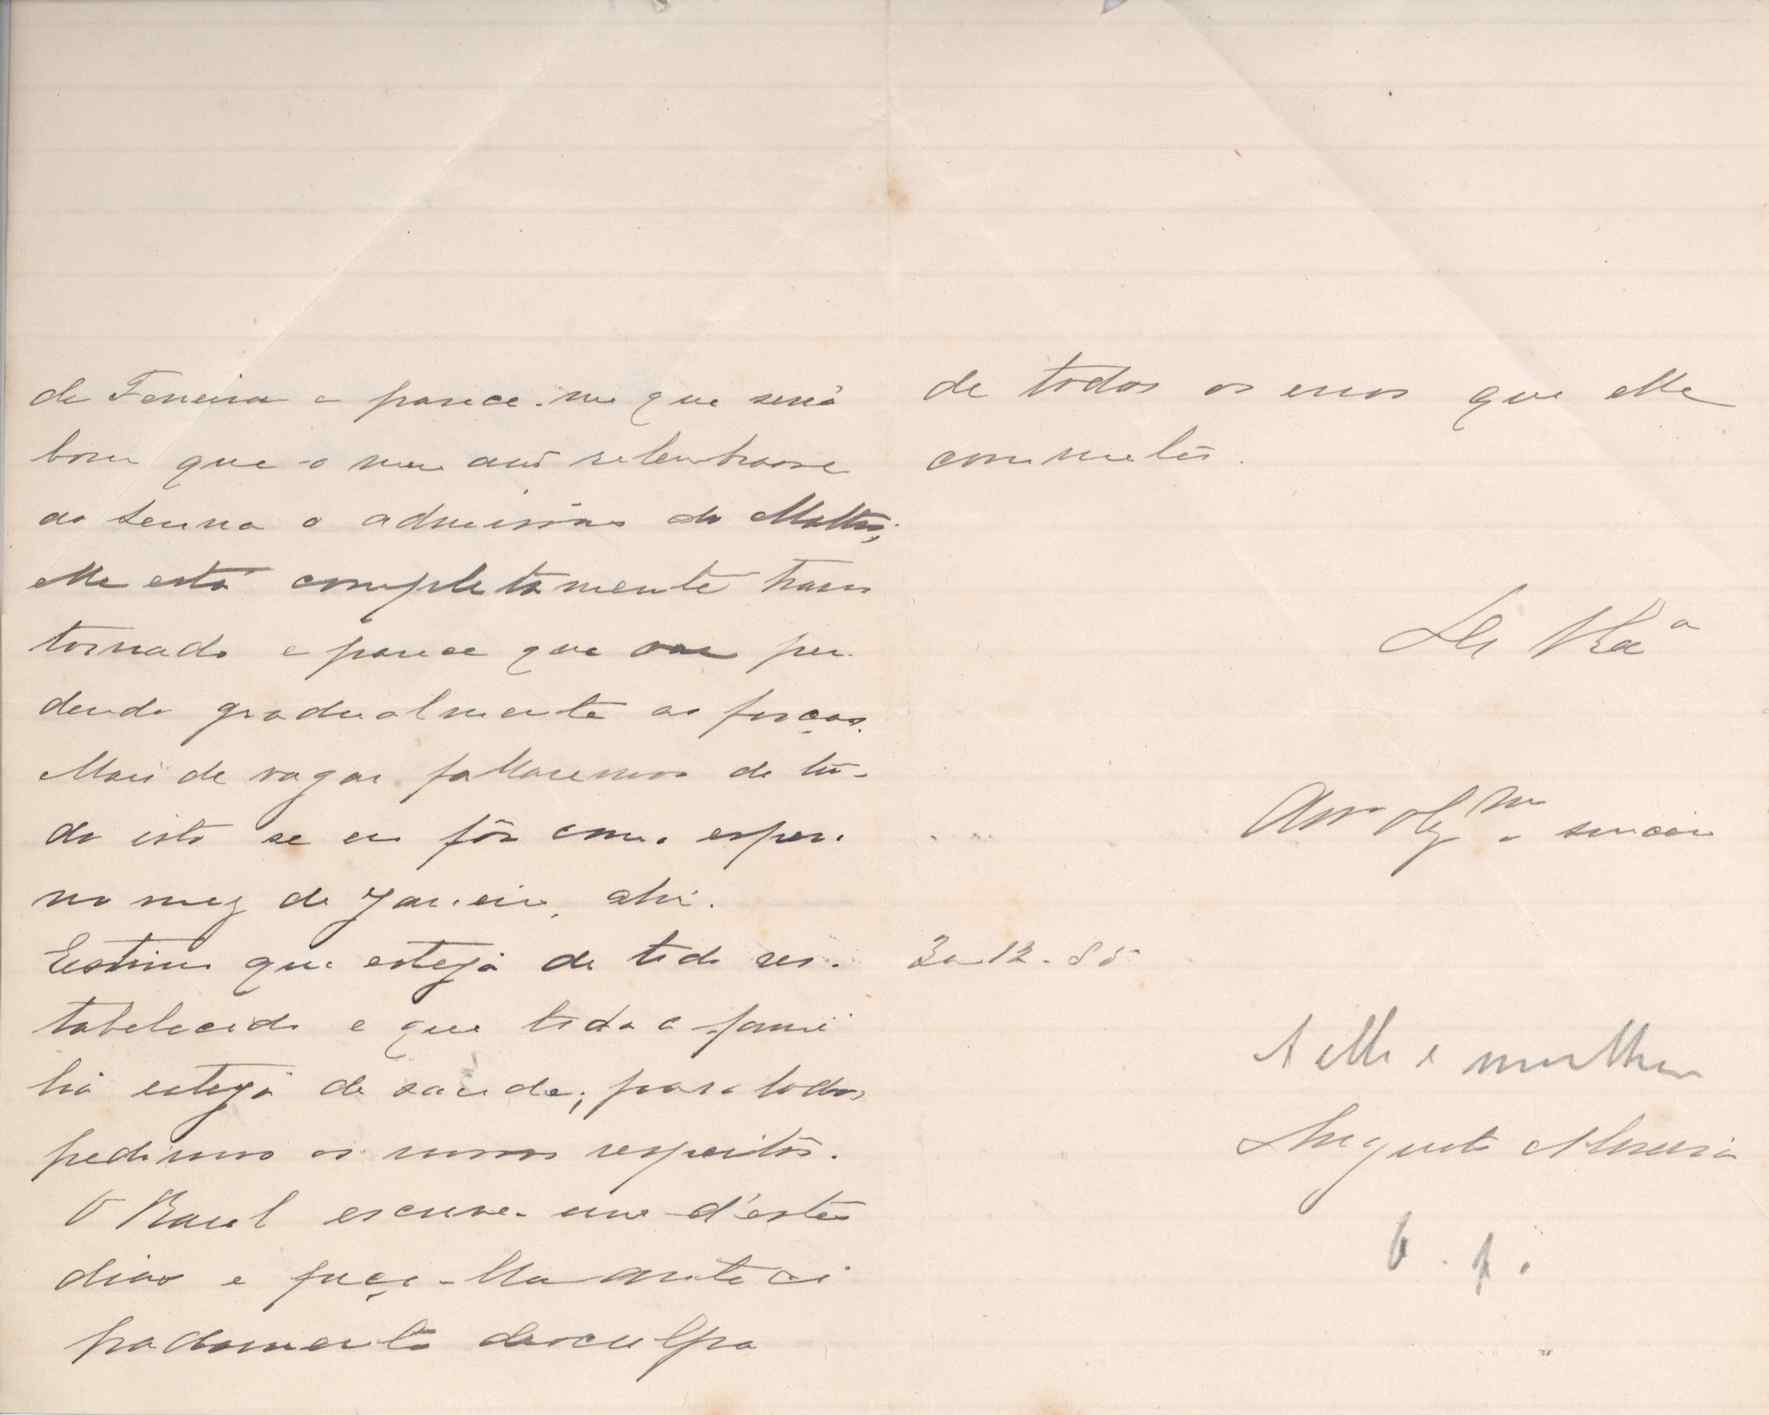 de Ferreira e parece-me que será
bom que o meu am.º relembrasse
ao Senna a admissão do Mattos;
elle está completamente trans
tornado e parece que vae per-
dendo gradualmente as forças.
Mais de vagar fallaremos de tu-
do isto se eu fôr como espero
no mez de Janeiro, ahi.
Estimo que esteja de todo res-
tabelecido e que toda a fami
lia esteja de saude; para todos
pedimos os nossos respeitos.
O Raul escreve-me d'estes
dias e peço-lhe anteci
padamente desculpa
de todos os erros que elle
commeter.
De V. Ex.ª
Am.º obg.mo e sincero
30-12-85
A elle e mulher
Augusto